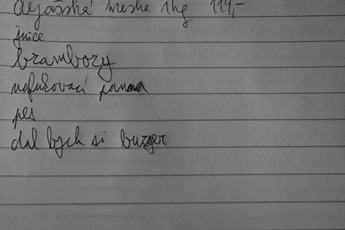 Aljašská treska 1kg 119,-
jnice
brambory
nafukovací panna
pes
dal bych si burger